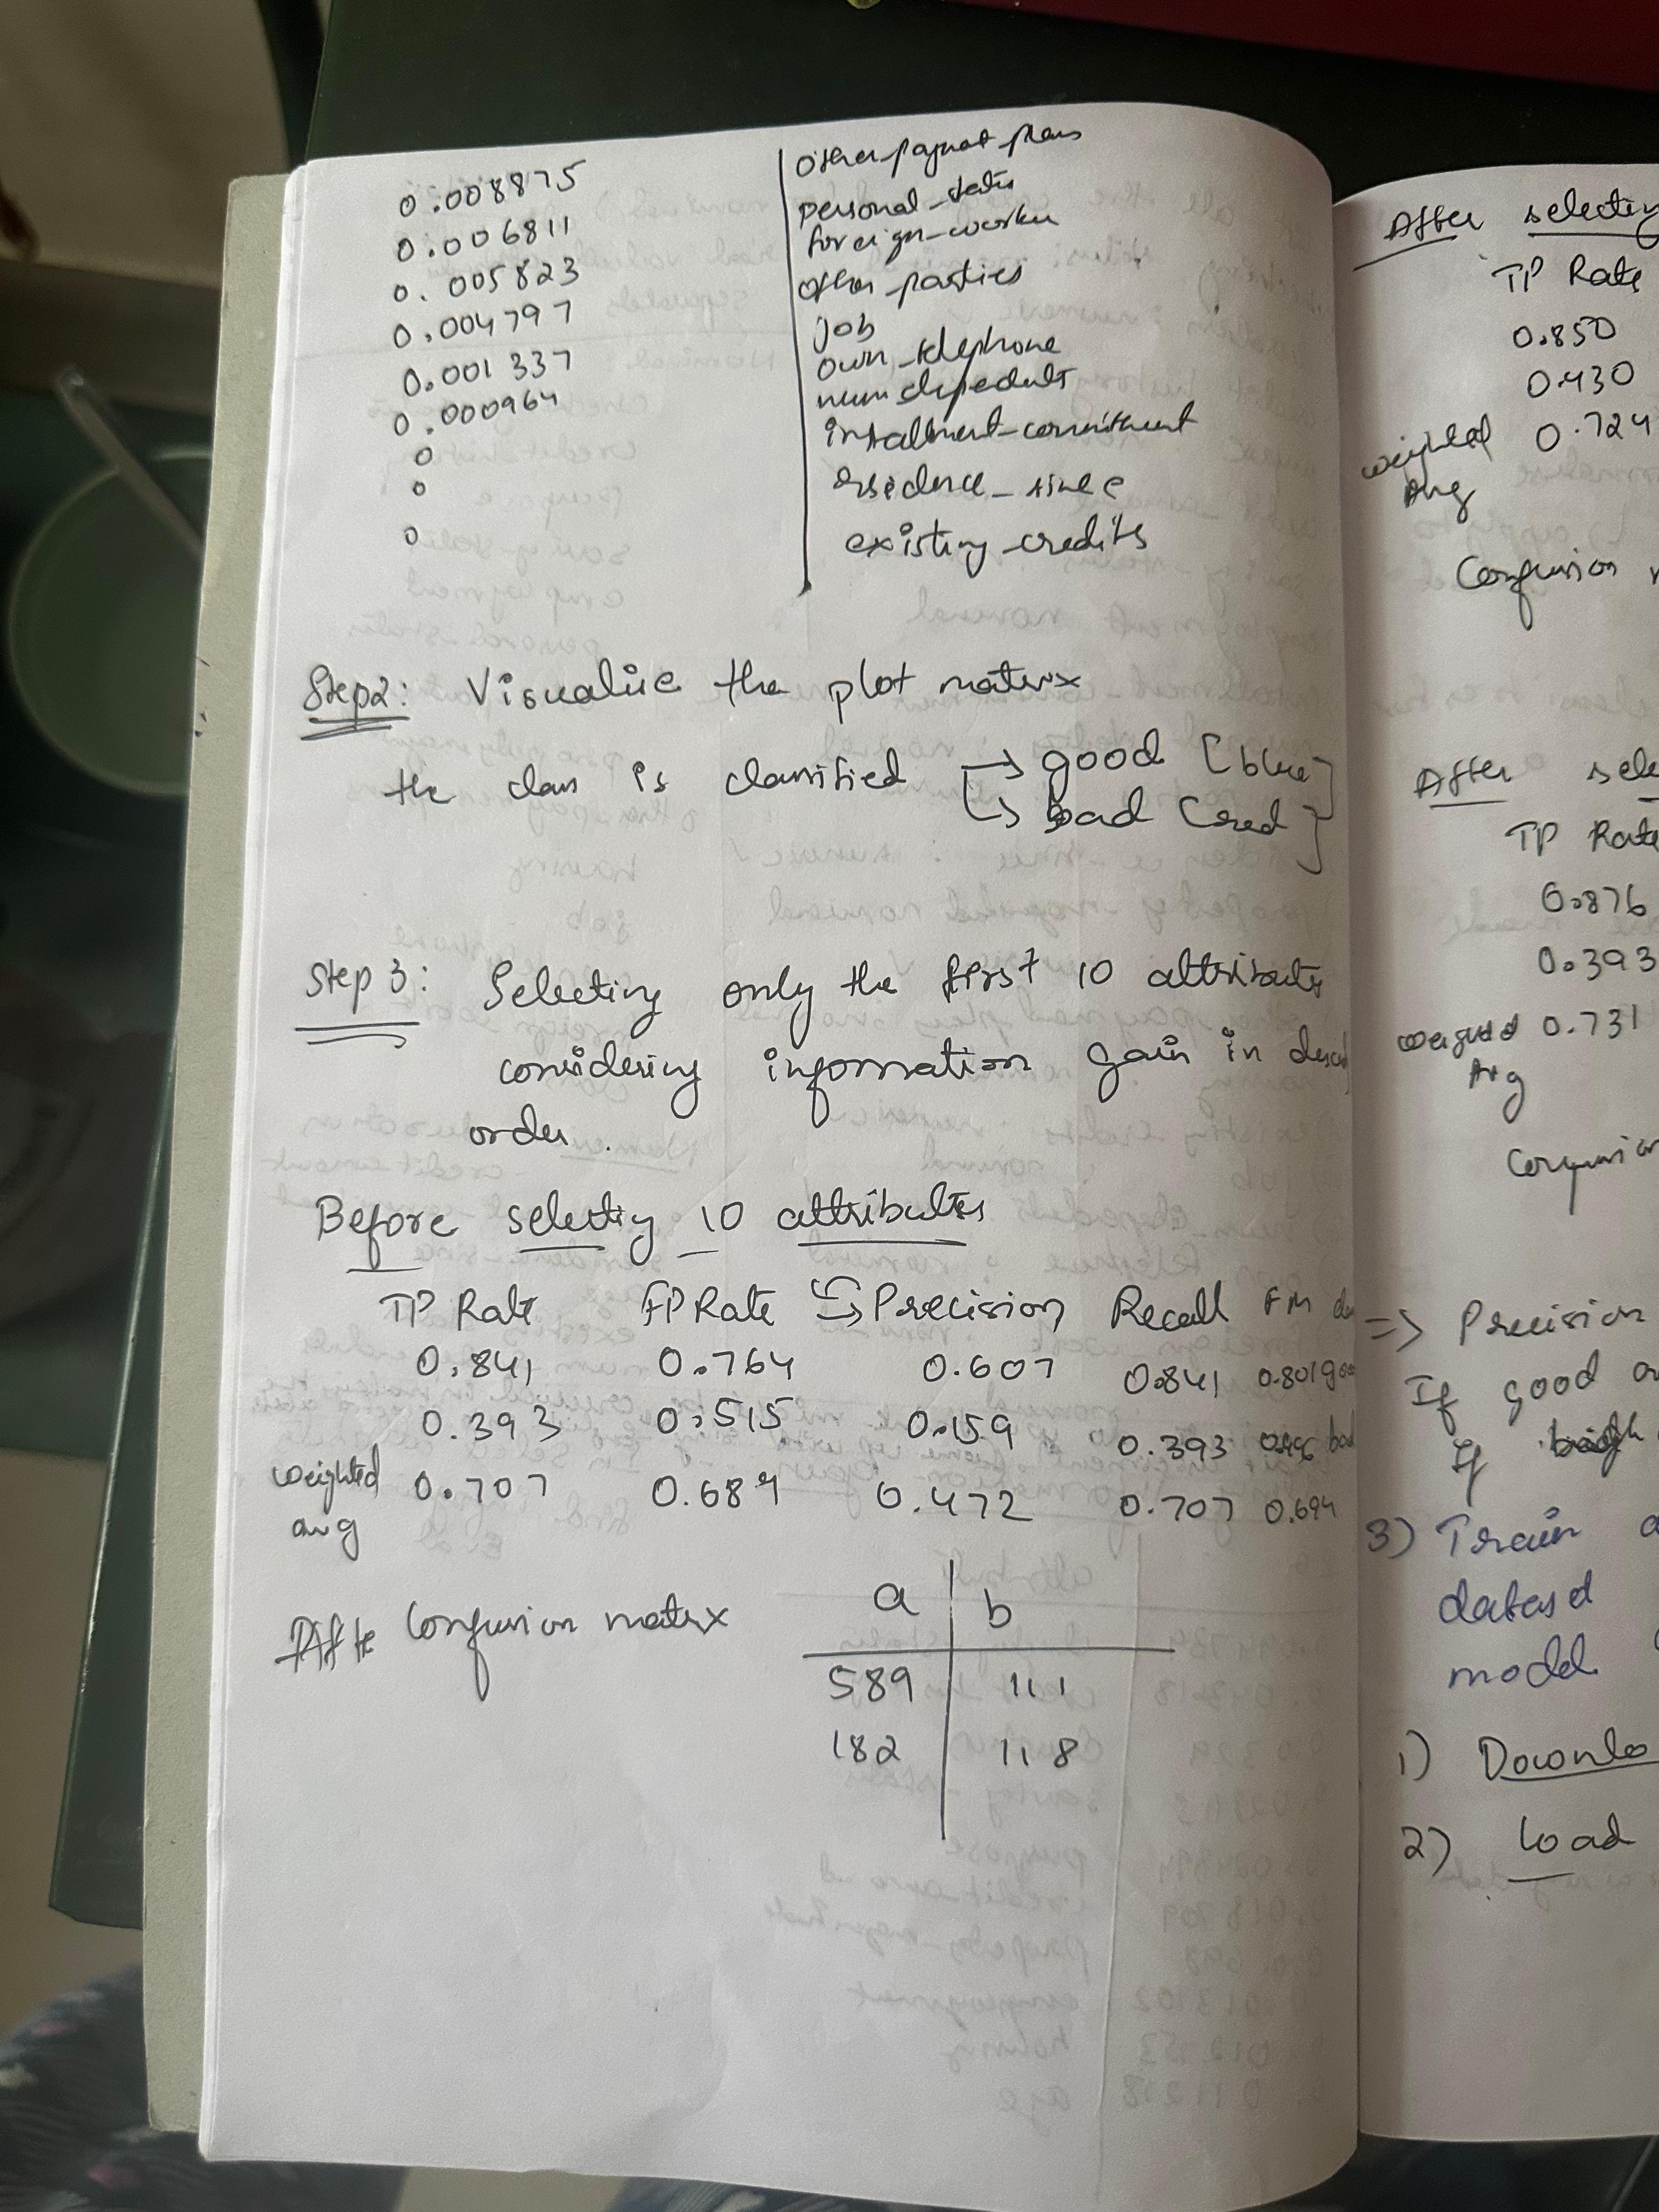 0.008875 other-paymet-plans
0.006811 personal-status
0.005823 foreign-worker
0.004797 other-parties
0.001337 job
0.000964 own-telephone
0 num dependents
0 installment-commitment
0 residence_since
existing-credits
Step2: Visualize the plot matrix
the class is classified → good [blue]
↳ bad [red]
Step 3: Selecting only the first 10 attributes
considering information gain in
order.
Before selectiy 10 attributes
TP Rate FP Rate Precision Recall FM
0.841 0.764 0.607 0.841 0.801
0.393 0.515 0.159 0.393
weighted avg 0.707 0.689 0.472 0.707 0.694
Confusion matrix
a b
589 111
182 118
After selecting
TP Rate
0.850
0.430
weighted Avg 0.724
Confusion
After
TP Rate
0.876
0.393
weighted Avg 0.731
=> Precision
If good
If
3) Train
datasd
model
1) Downlo
2) Load